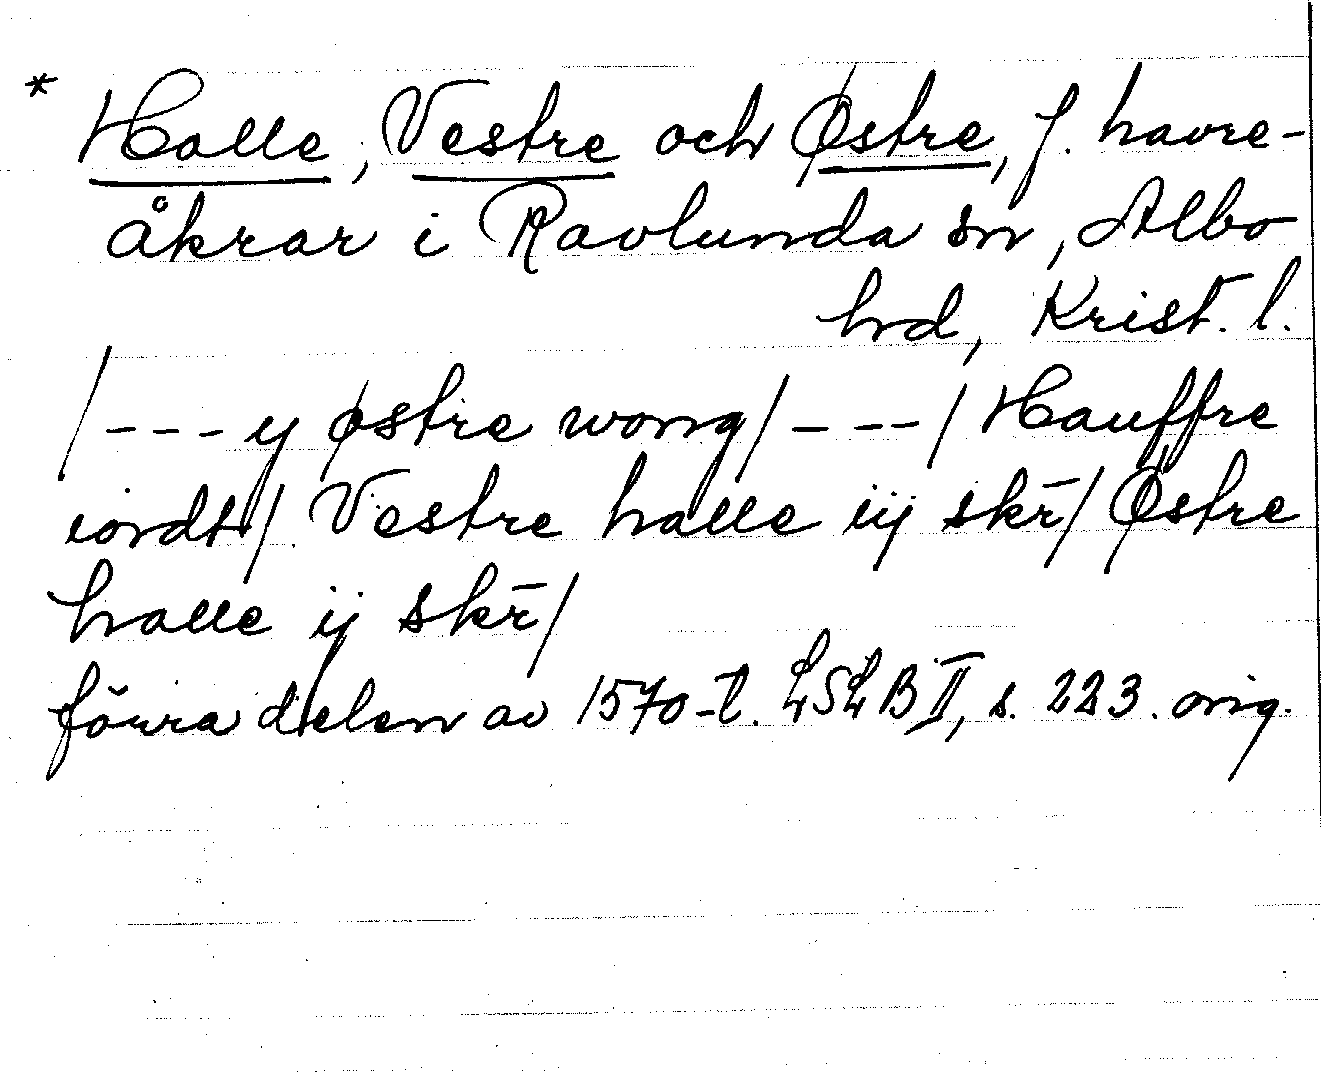 * Halle, Vestre och Østre, f. havre-
åkrar i Ravlunda sn, Albo
hd, Krist. l.
/---y østre wong/---/ Hauffre
iordt/ Vestre halle iij skr̄/ Østre
halle ij skr̄/
förra delen av 1570-t. LSLB II, s. 223. orig.